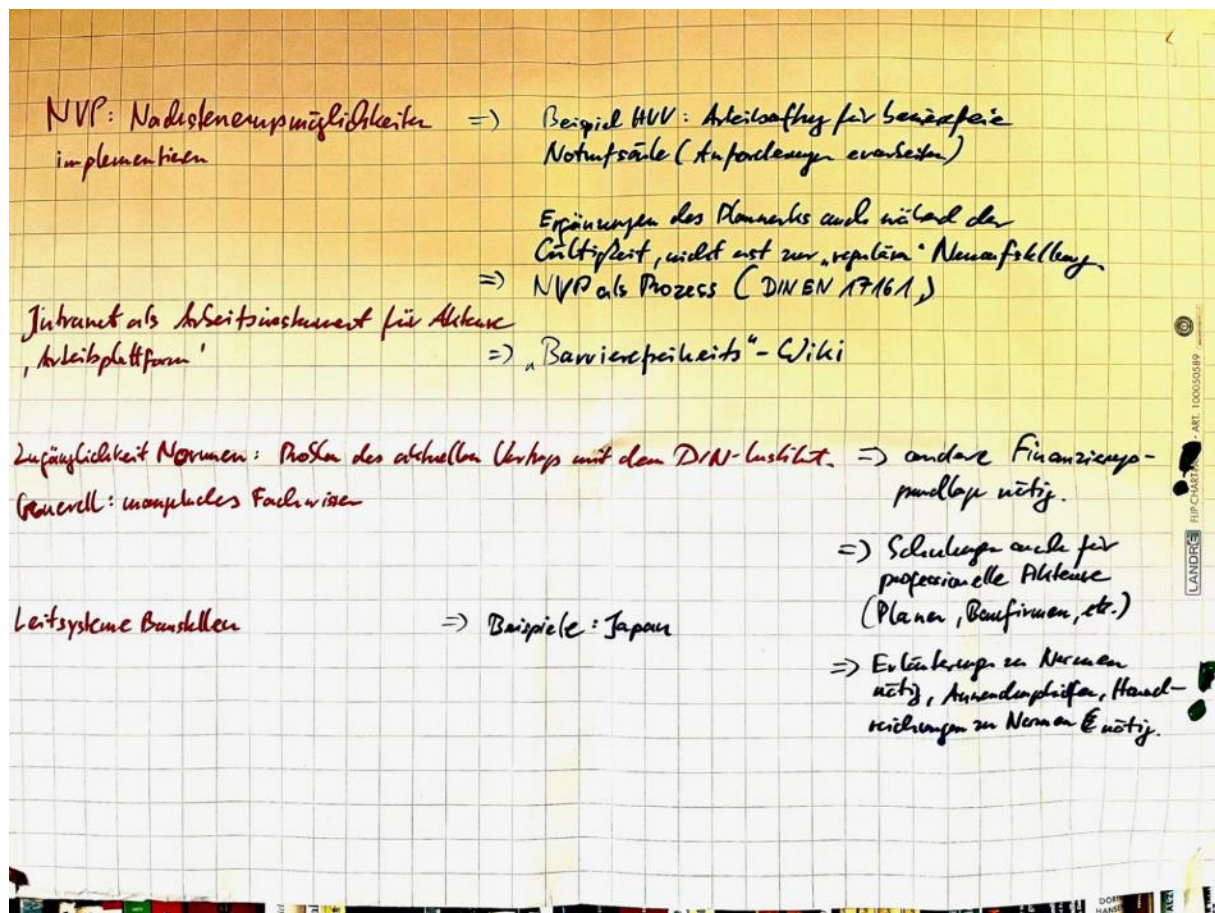 NVP: Nachsteuerungsmöglichkeiten
implementieren
=> Beispiel HVV: Arbeitsauftrag für barrierefreie
Notrufsäule (Anforderungen erarbeiten)
Ergänzungen des Planwerks auch während der
Gültigkeit, nicht erst zur „regulären“ Neuaufstellung
=> NVP als Prozess (DIN EN 17161)
Intranet als Arbeitsinstrument für Akteure
‚Arbeitsplattform‘
=> „Barrierefreiheits“-Wiki
Zugänglichkeit Normen: Problem des aktuellen Vertrags mit dem DIN-Institut.
=> andere Finanzierungs-
grundlage nötig.
Generell: mangelndes Fachwissen
=> Schulungen auch für
professionelle Akteure
(Planer, Baufirmen, etc.)
=> Erläuterungen zu Normen
nötig, Anwendungshilfen, Hand-
reichungen zu Normen nötig.
Leitsysteme Baustellen
=> Beispiele: Japan
LANDRÉ FLIP-CHART ART. 100050589